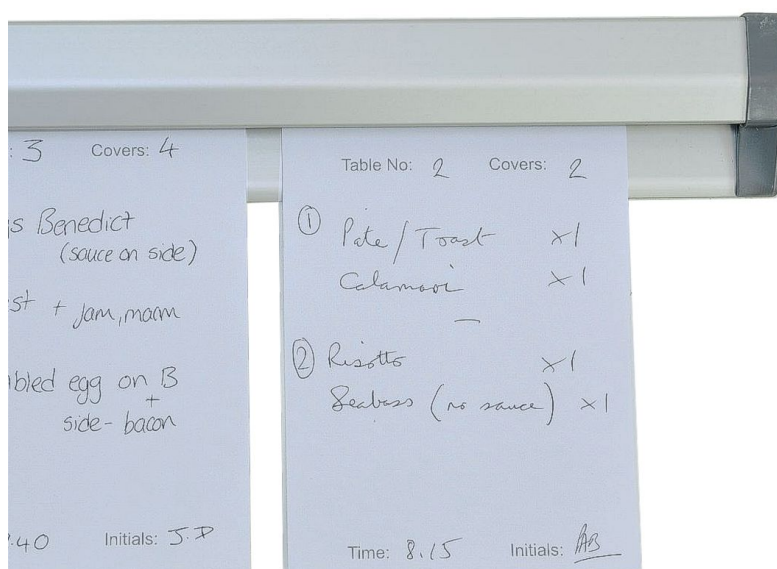 : 3 Covers: 4
s Benedict
(sauce on side)
st + jam, marm
bled egg on B
+
side - bacon
.40 Initials: J.P
Table No: 2 Covers: 2
1 Pate / Toast x1
Calamari x1
—
2 Risotto x1
Seabass (no sauce) x1
Time: 8.15 Initials: AB